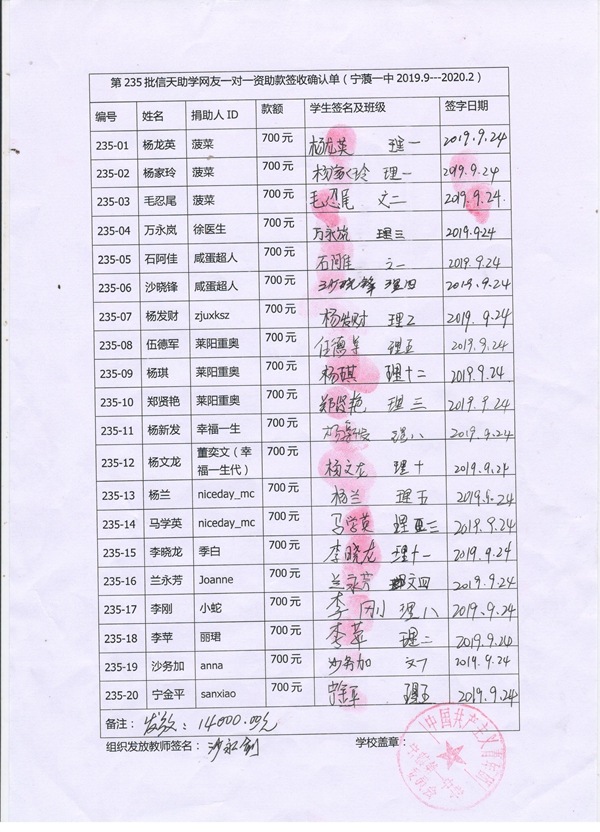 第 235 批信天助学网友一对一资助款签收确认单（宁蒗一中 2019.9---2020.2）
编号 姓名 捐助人 ID 款额 学生签名及班级 签字日期
235-01 杨龙英 菠菜 700 元 杨龙英 理一 2019.9.24
235-02 杨家玲 菠菜 700 元 杨家玲 理一 2019.9.24
235-03 毛忍尾 菠菜 700 元 毛忍尾 文二 2019.9.24.
235-04 万永岚 徐医生 700 元 万永岚 理三 2019.9.24
235-05 石阿佳 咸蛋超人 700 元 石阿佳 文一 2019.9.24
235-06 沙晓锋 咸蛋超人 700 元 沙晓锋 理四 2019.9.24
235-07 杨发财 zjuxksz 700 元 杨发财 理2 2019.9.24
235-08 伍德军 莱阳重奥 700 元 伍德军 理五 2019.9.24
235-09 杨琪 莱阳重奥 700 元 杨琪 理十二 2019.9.24
235-10 郑贤艳 莱阳重奥 700 元 郑贤艳 理三 2019.9.24
235-11 杨新发 幸福一生 700 元 杨新发 理八 2019.9.24
235-12 杨文龙 董奕文（幸 700 元 杨文龙 理十 2019.9.24
福一生代）
235-13 杨兰 niceday_mc 700 元 杨兰 理五 2019.9.24
235-14 马学英 niceday_mc 700 元 马学英 理三 2019.9.24
235-15 李晓龙 季白 700 元 李晓龙 理十一 2019.9.24
235-16 兰永芳 Joanne 700 元 兰永芳 文四 2019.9.24
235-17 李刚 小蛇 700 元 李刚 理八 2019.9.24
235-18 李苹 丽珺 700 元 李苹 理二 2019.9.24
235-19 沙务加 anna 700 元 沙务加 2019.9.24
235-20 宁金平 sanxiao 700 元 宁金平 理五 2019.9.24
备注： 发款：14000.00元
组织发放教师签名： 学校盖章：
中国共产主义青年团